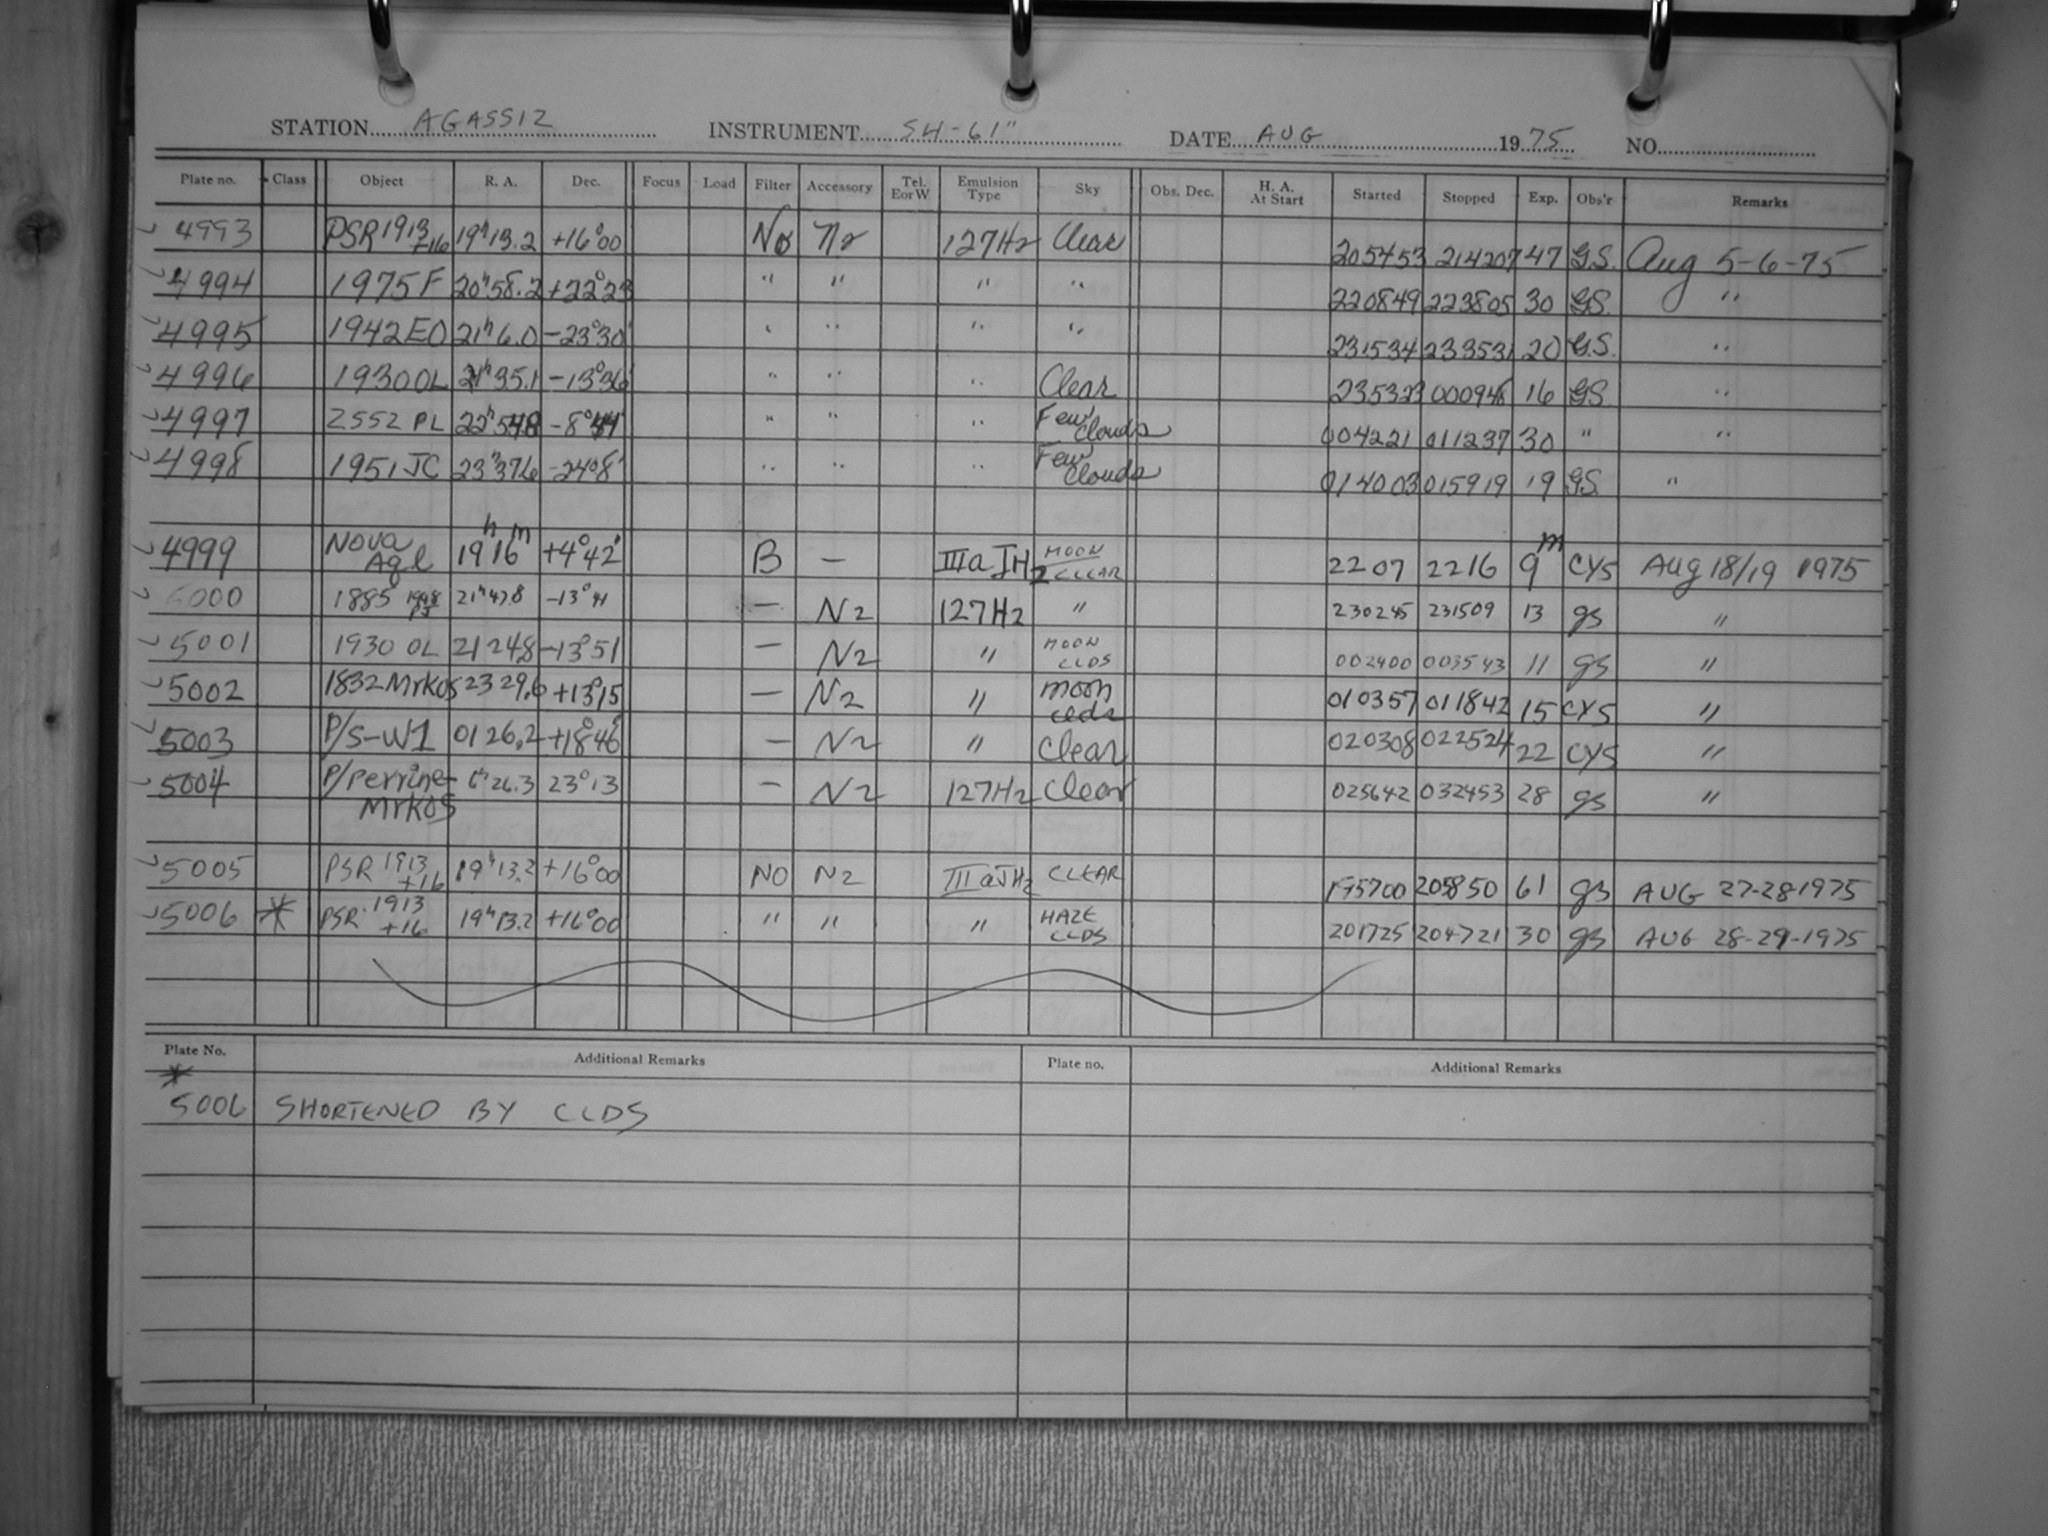 STATION AGASSIZ INSTRUMENT SH-61" DATE AUG 1975 NO.
Plate no. Class Object R. A. Dec. Focus Load Filter Accessory Tel. E or W Emulsion Type Sky Obs. Dec. H. A. At Start Started Stopped Exp. Obs'r Remarks
4993 PSR 1913+16 19h13.2 +16°00 No N2 127H2 Clear 205453 214207 47 G.S. Aug 5-6-75
4994 1975F 20h58.2 +22°23 " " " " 220849 223805 30 G.S. "
4995 1942EO 21h6.0 -23°30' " " " " 231534 233531 20 G.S. "
4996 1930OL 21h35.1 -13°36' " " " Clear 235323 000948 16 G.S. "
4997 2552 PL 22h54.8 -8°44' " " " Few Clouds 004221 011237 30 " "
4998 1951JC 23h37.6 -24°8' " " " Few Clouds 014003 015919 19 G.S. "
4999 Nova Aql 19h16m +4°42' B - IIIaJH2 MOON CLEAR 2207 2216 9m CYS Aug 18/19 1975
5000 1885 21h47.8 -13°41 - N2 127H2 " 230245 231509 13 gs "
5001 1930 OL 21 24.8 -13°51 - N2 " MOON CLDS 002400 003543 11 gs "
5002 1832 Mrkos 23 29.6 +13°15 - N2 " moon clds 010357 011842 15 CYS "
5003 P/S-W1 01 26.2 +18°46' - N2 " clear 020308 022524 22 CYS "
5004 P/Perrine-Mrkos 6h26.3 23°13 - N2 127H2 clear 025642 032453 28 gs "
5005 PSR 1913+16 19h13.2 +16°00 NO N2 IIIaJH2 CLEAR 195700 205850 61 gs AUG 27-28 1975
5006 * PSR 1913+16 19h13.2 +16°00 " " " HAZE CLDS 201725 204721 30 gs AUG 28-29-1975
Plate No. Additional Remarks Plate no. Additional Remarks
*
5006 SHORTENED BY CLDS